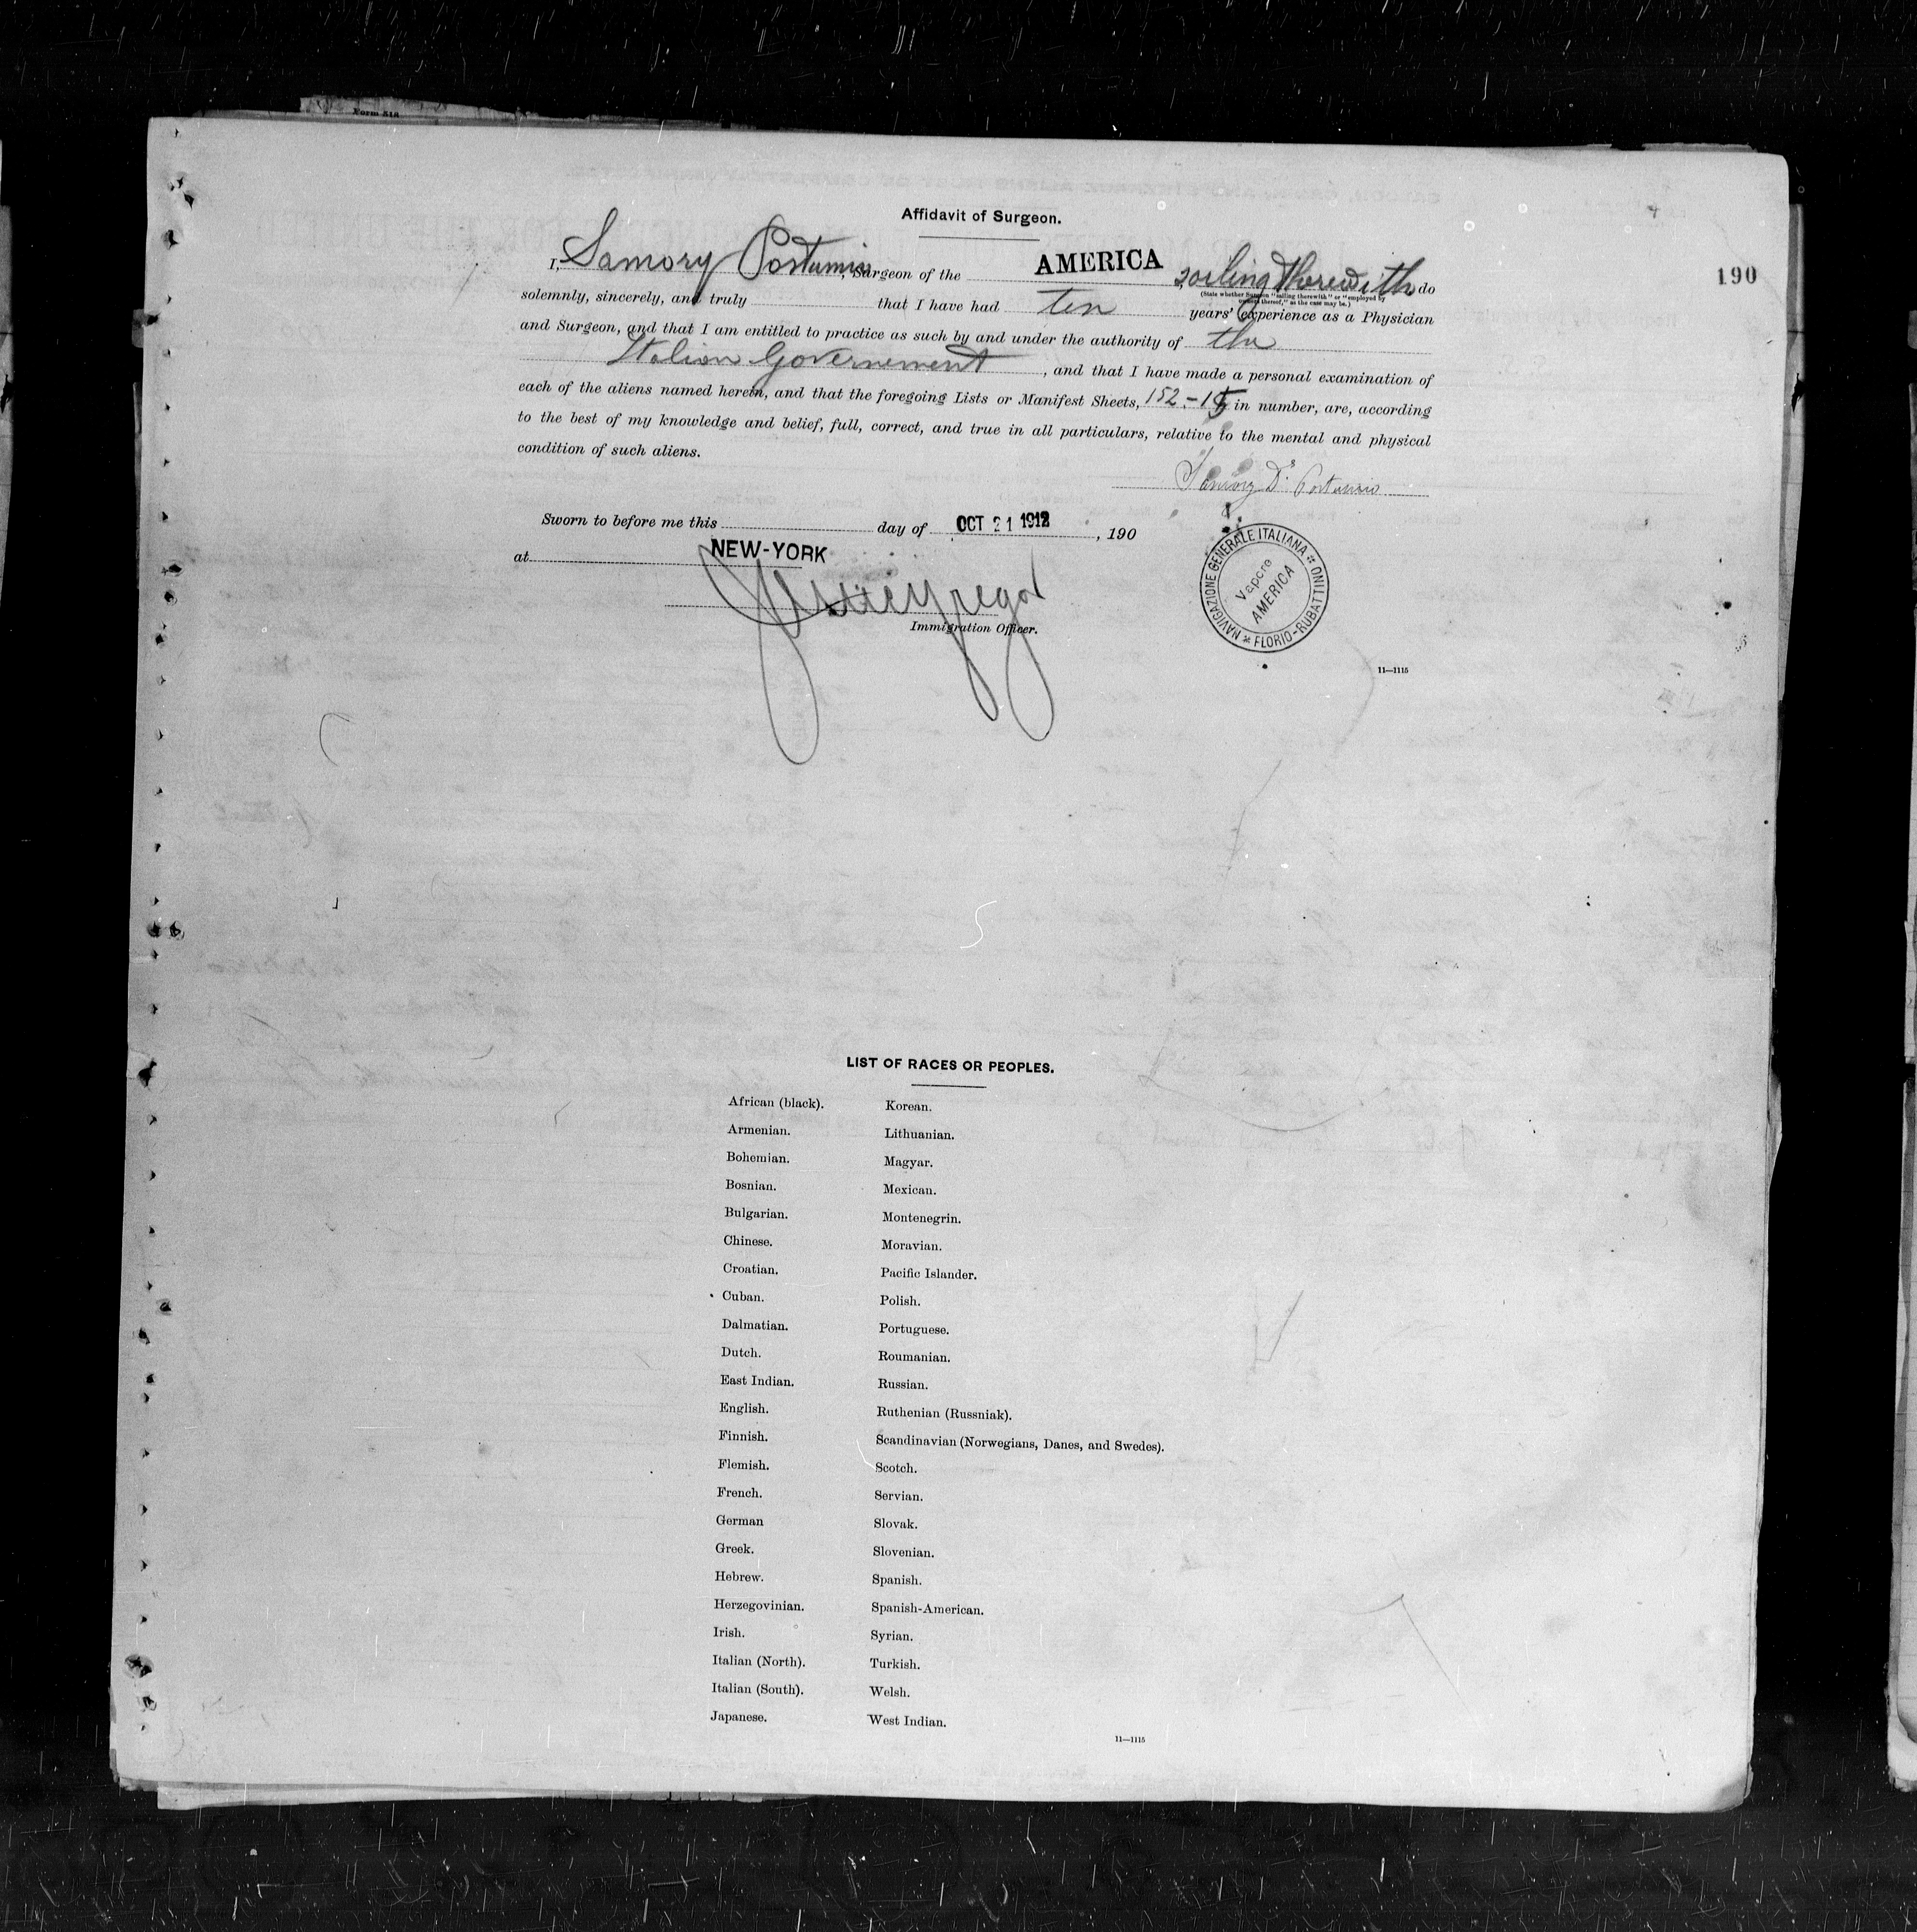 Form 518
Affidavit of Surgeon.
190
I, Samory Postumio, Surgeon of the AMERICA sailing therewith do
(State whether Surgeon "sailing therewith" or "employed by
owners thereof," as the case may be.)
solemnly, sincerely, and truly that I have had ten years' experience as a Physician
and Surgeon, and that I am entitled to practice as such by and under the authority of the
Italian Governement, and that I have made a personal examination of
each of the aliens named herein, and that the foregoing Lists or Manifest Sheets, 152.- in number, are, according
to the best of my knowledge and belief, full, correct, and true in all particulars, relative to the mental and physical
condition of such aliens.
Samory Dr. Postumio
Sworn to before me this day of OCT 21 1912, 190
at NEW-YORK
Immigration Officer.
NAVIGAZIONE GENERALE ITALIANA
FLORIO-RUBATTINO
Vapore
AMERICA
11—1115
LIST OF RACES OR PEOPLES.
African (black).
Armenian.
Bohemian.
Bosnian.
Bulgarian.
Chinese.
Croatian.
Cuban.
Dalmatian.
Dutch.
East Indian.
English.
Finnish.
Flemish.
French.
German
Greek.
Hebrew.
Herzegovinian.
Irish.
Italian (North).
Italian (South).
Japanese.
Korean.
Lithuanian.
Magyar.
Mexican.
Montenegrin.
Moravian.
Pacific Islander.
Polish.
Portuguese.
Roumanian.
Russian.
Ruthenian (Russniak).
Scandinavian (Norwegians, Danes, and Swedes).
Scotch.
Servian.
Slovak.
Slovenian.
Spanish.
Spanish-American.
Syrian.
Turkish.
Welsh.
West Indian.
11—1115